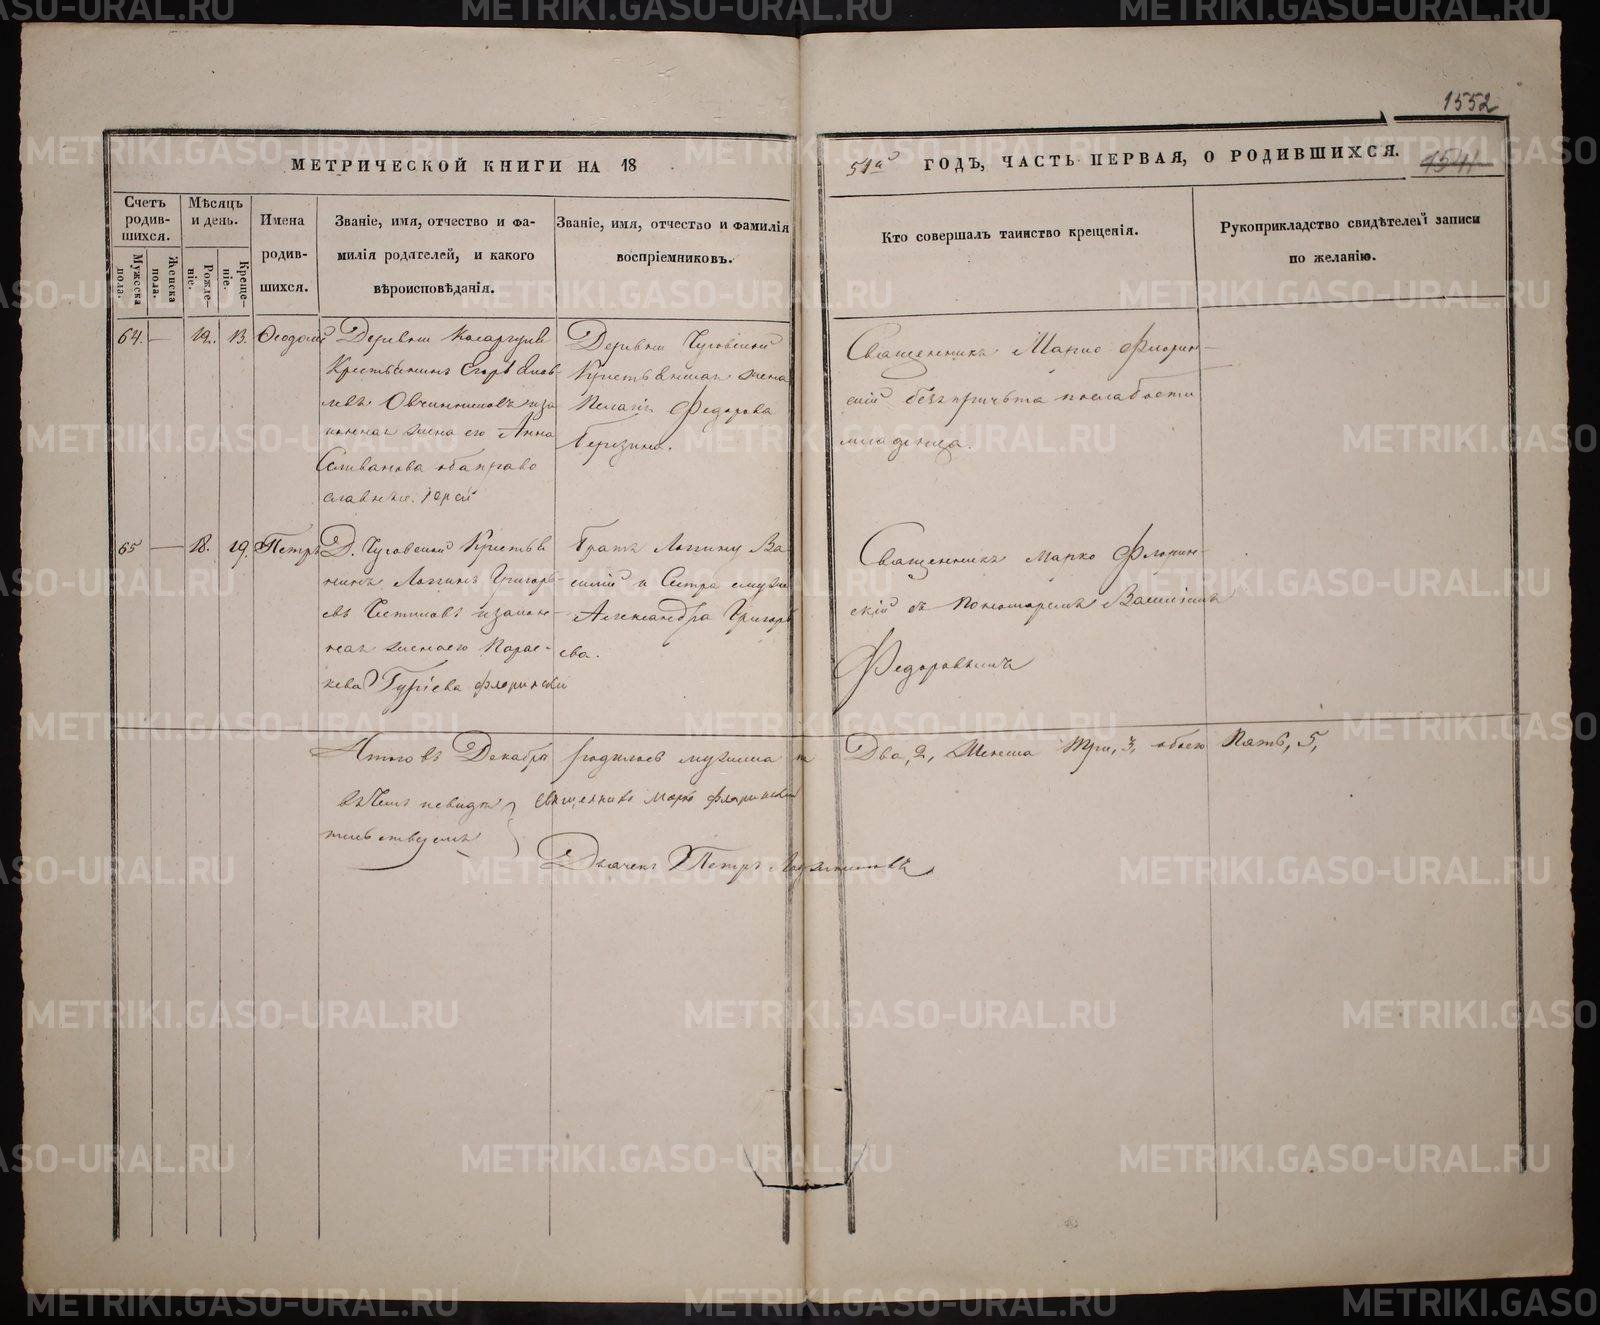 1552
МЕТРИЧЕСКОЙ КНИГИ НА 18
51й ГОДЪ, ЧАСТЬ ПЕРВАЯ, О РОДИВШИХСЯ.
1541
Счетъ родив-шихся.
Мѣсяцъ и день.
Имена родив-шихся.
Званіе, имя, отчество и фа-
милія родителей, и какого
вѣроисповѣданія.
Званіе, имя, отчество и фамилія
воспріемниковъ.
Кто совершалъ таинство крещенія.
Рукоприкладство свидѣтелей записи
по желанію.
Мужеска пола.
Женска пола.
Рожде-ніе.
Креще-ніе.
64. — 12. 13.
Деревни
Крестьянинъ Егоръ Яков-
левъ Овчинниковъ иза
конная жена его Анна
Селиванова оба право
славные.
Деревни Чусовской
Крестьянская жена
Пелагія Федорова
Березина.
Священникъ Марко Флорин-
скій безъ причта послабости
младенца.
65 — 18. 19. Петръ
Д. Чусовской Крестья
нинъ Логинъ Григорь-
евъ изакон-
ная женаего Парас-
кева Гуріева Флоринскій
Братъ Логину Ва-
силій и Сестра емуже
Александра Григорь
ева.
Священникъ Марко Флорин-
скій съ Пономаремъ Василіемъ
Федоровымъ
Итого въ Декабрѣ родилось мужеска п Два, 2, Женска Три, 3, обоего Пять, 5,
въ чемъ и свидѣ
тельствуемъ
Священникъ Марко Флоринскій
Дьячекъ Петръ
METRIKI.GASO-URAL.RU